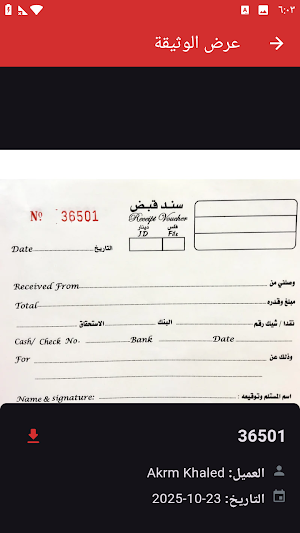 ٦:٠٣
عرض الوثيقة
Nº 36501
سند قبض
Receipt Voucher
دينار فلس
JD Fils
Date التاريخ
Received From وصلني من
Total مبلغ وقدره
نقدا / شيك رقم البنك الاستحقاق
Cash/ Check No. Bank Date
For وذلك عن
Name & signature: اسم المستلم وتوقيعه :
36501
العميل: Akrm Khaled
التاريخ: 2025-10-23